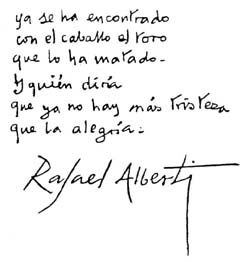 ya se ha encontrado
con el caballo el toro
que lo ha matado.
Y quién diría
que ya no hay más tristeza
que la alegría.
Rafael Alberti